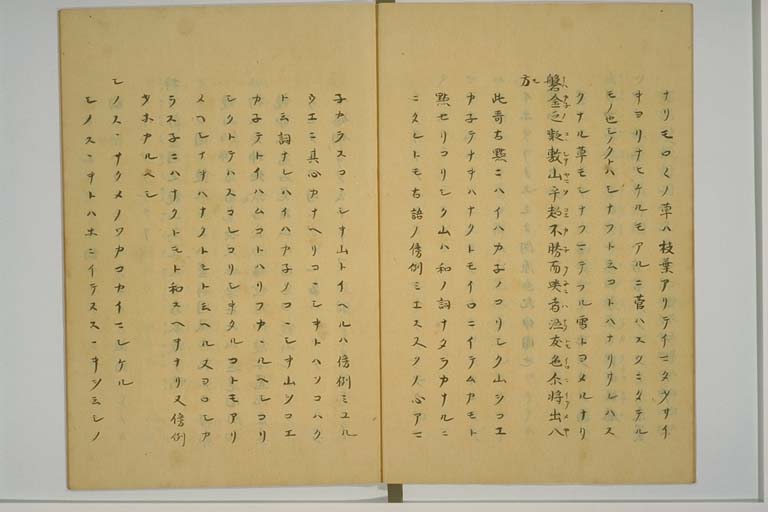 ナリモロくノ草ハ枝葉アリテイ
ヨリナヒケルモアルニ菅ハスクニタテル
モノ也シノクトハシナフト云コトハナリサレハス
クナル草モシナフニテフル雪トヨメルナリ
磐金之凝敷山乎超不勝而哭者泣友色尓将出八
方
此哥古點ニハイハカ子ノコリシク山シコエ
カ子テナキハナクトモイロニイテムカモト
點セリコリシク山ハ和ノ詞ナタラカナルニ
ニタレトモ古語ノ傍例ミエススノ心アニ
子カラスコヽシキ山トイヘルハ傍例ミユル
ウエニ真心カナヘリコヽシキトハソコハク
ト云詞ナレハイハカ子ノコヽシキ山シコエ
カ子テトイハムコトハリフカヽルヘシコリ
シクトテハスコシコリシキタルコトモアリ
メヘシイナハナクトモト云ヘルスコロシカ
ラス子ニハナクトモト和スヘキナリ又傍例
オホカルヘシ
シノスヽキサクメノワカコカイニシケル
シノスヽキトハホニイテヌスヽキシミシノ